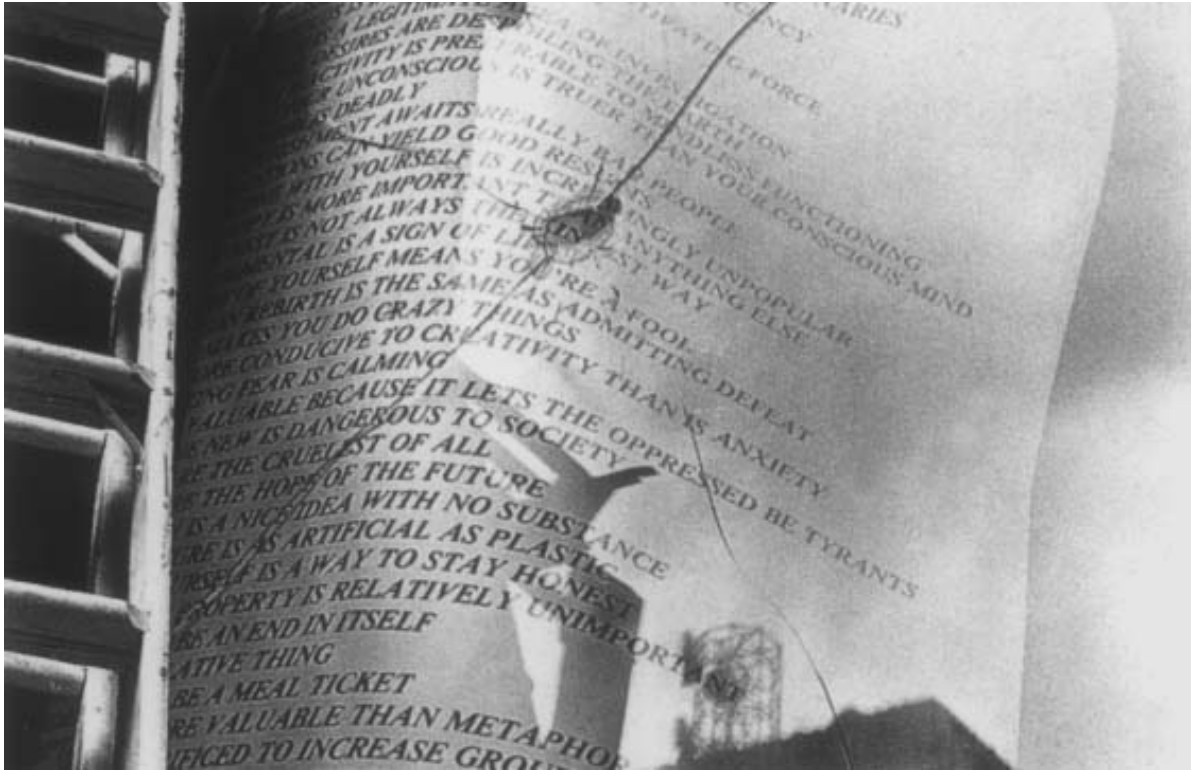 ARIES
CIENCY
IVATING FORCE
A LEGITIMATE AREA FOR INVESTIGATION
ESIRES ARE DESPOILING THE EARTH
ACTIVITY IS PREFERABLE TO MINDLESS FUNCTIONING
R UNCONSCIOUS IS TRUER THAN YOUR CONSCIOUS MIND
IS DEADLY
SHMENT AWAITS REALLY BAD PEOPLE
ONS CAN YIELD GOOD RESULTS
WITH YOURSELF IS INCREASINGLY UNPOPULAR
IS MORE IMPORTANT THAN ANYTHING ELSE
IS NOT ALWAYS THE KINDEST WAY
MENTAL IS A SIGN OF LIFE
YOURSELF MEANS YOU'RE A FOOL
REBIRTH IS THE SAME AS ADMITTING DEFEAT
MAKES YOU DO CRAZY THINGS
RE CONDUCIVE TO CREATIVITY THAN IS ANXIETY
ING FEAR IS CALMING
VALUABLE BECAUSE IT LETS THE OPPRESSED BE TYRANTS
NEW IS DANGEROUS TO SOCIETY
THE CRUELEST OF ALL
THE HOPE OF THE FUTURE
IS A NICE IDEA WITH NO SUBSTANCE
URE IS AS ARTIFICIAL AS PLASTIC
URSELF IS A WAY TO STAY HONEST
ROPERTY IS RELATIVELY UNIMPORTANT
RE AN END IN ITSELF
ATIVE THING
BE A MEAL TICKET
RE VALUABLE THAN METAPHOR
IFICED TO INCREASE GROU